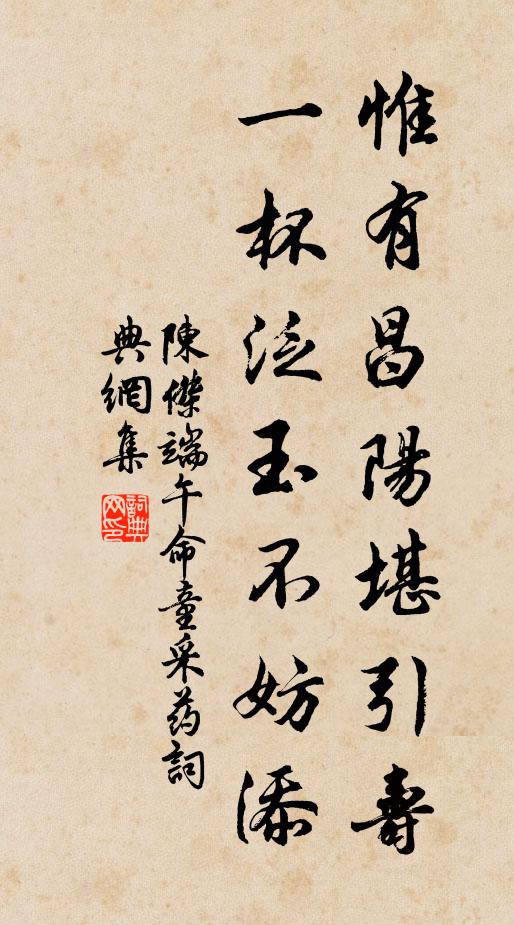 惟有昌陽堪引壽
一杯泛玉不妨添
陳傑端午命童采药詞
典網集
詞典网印